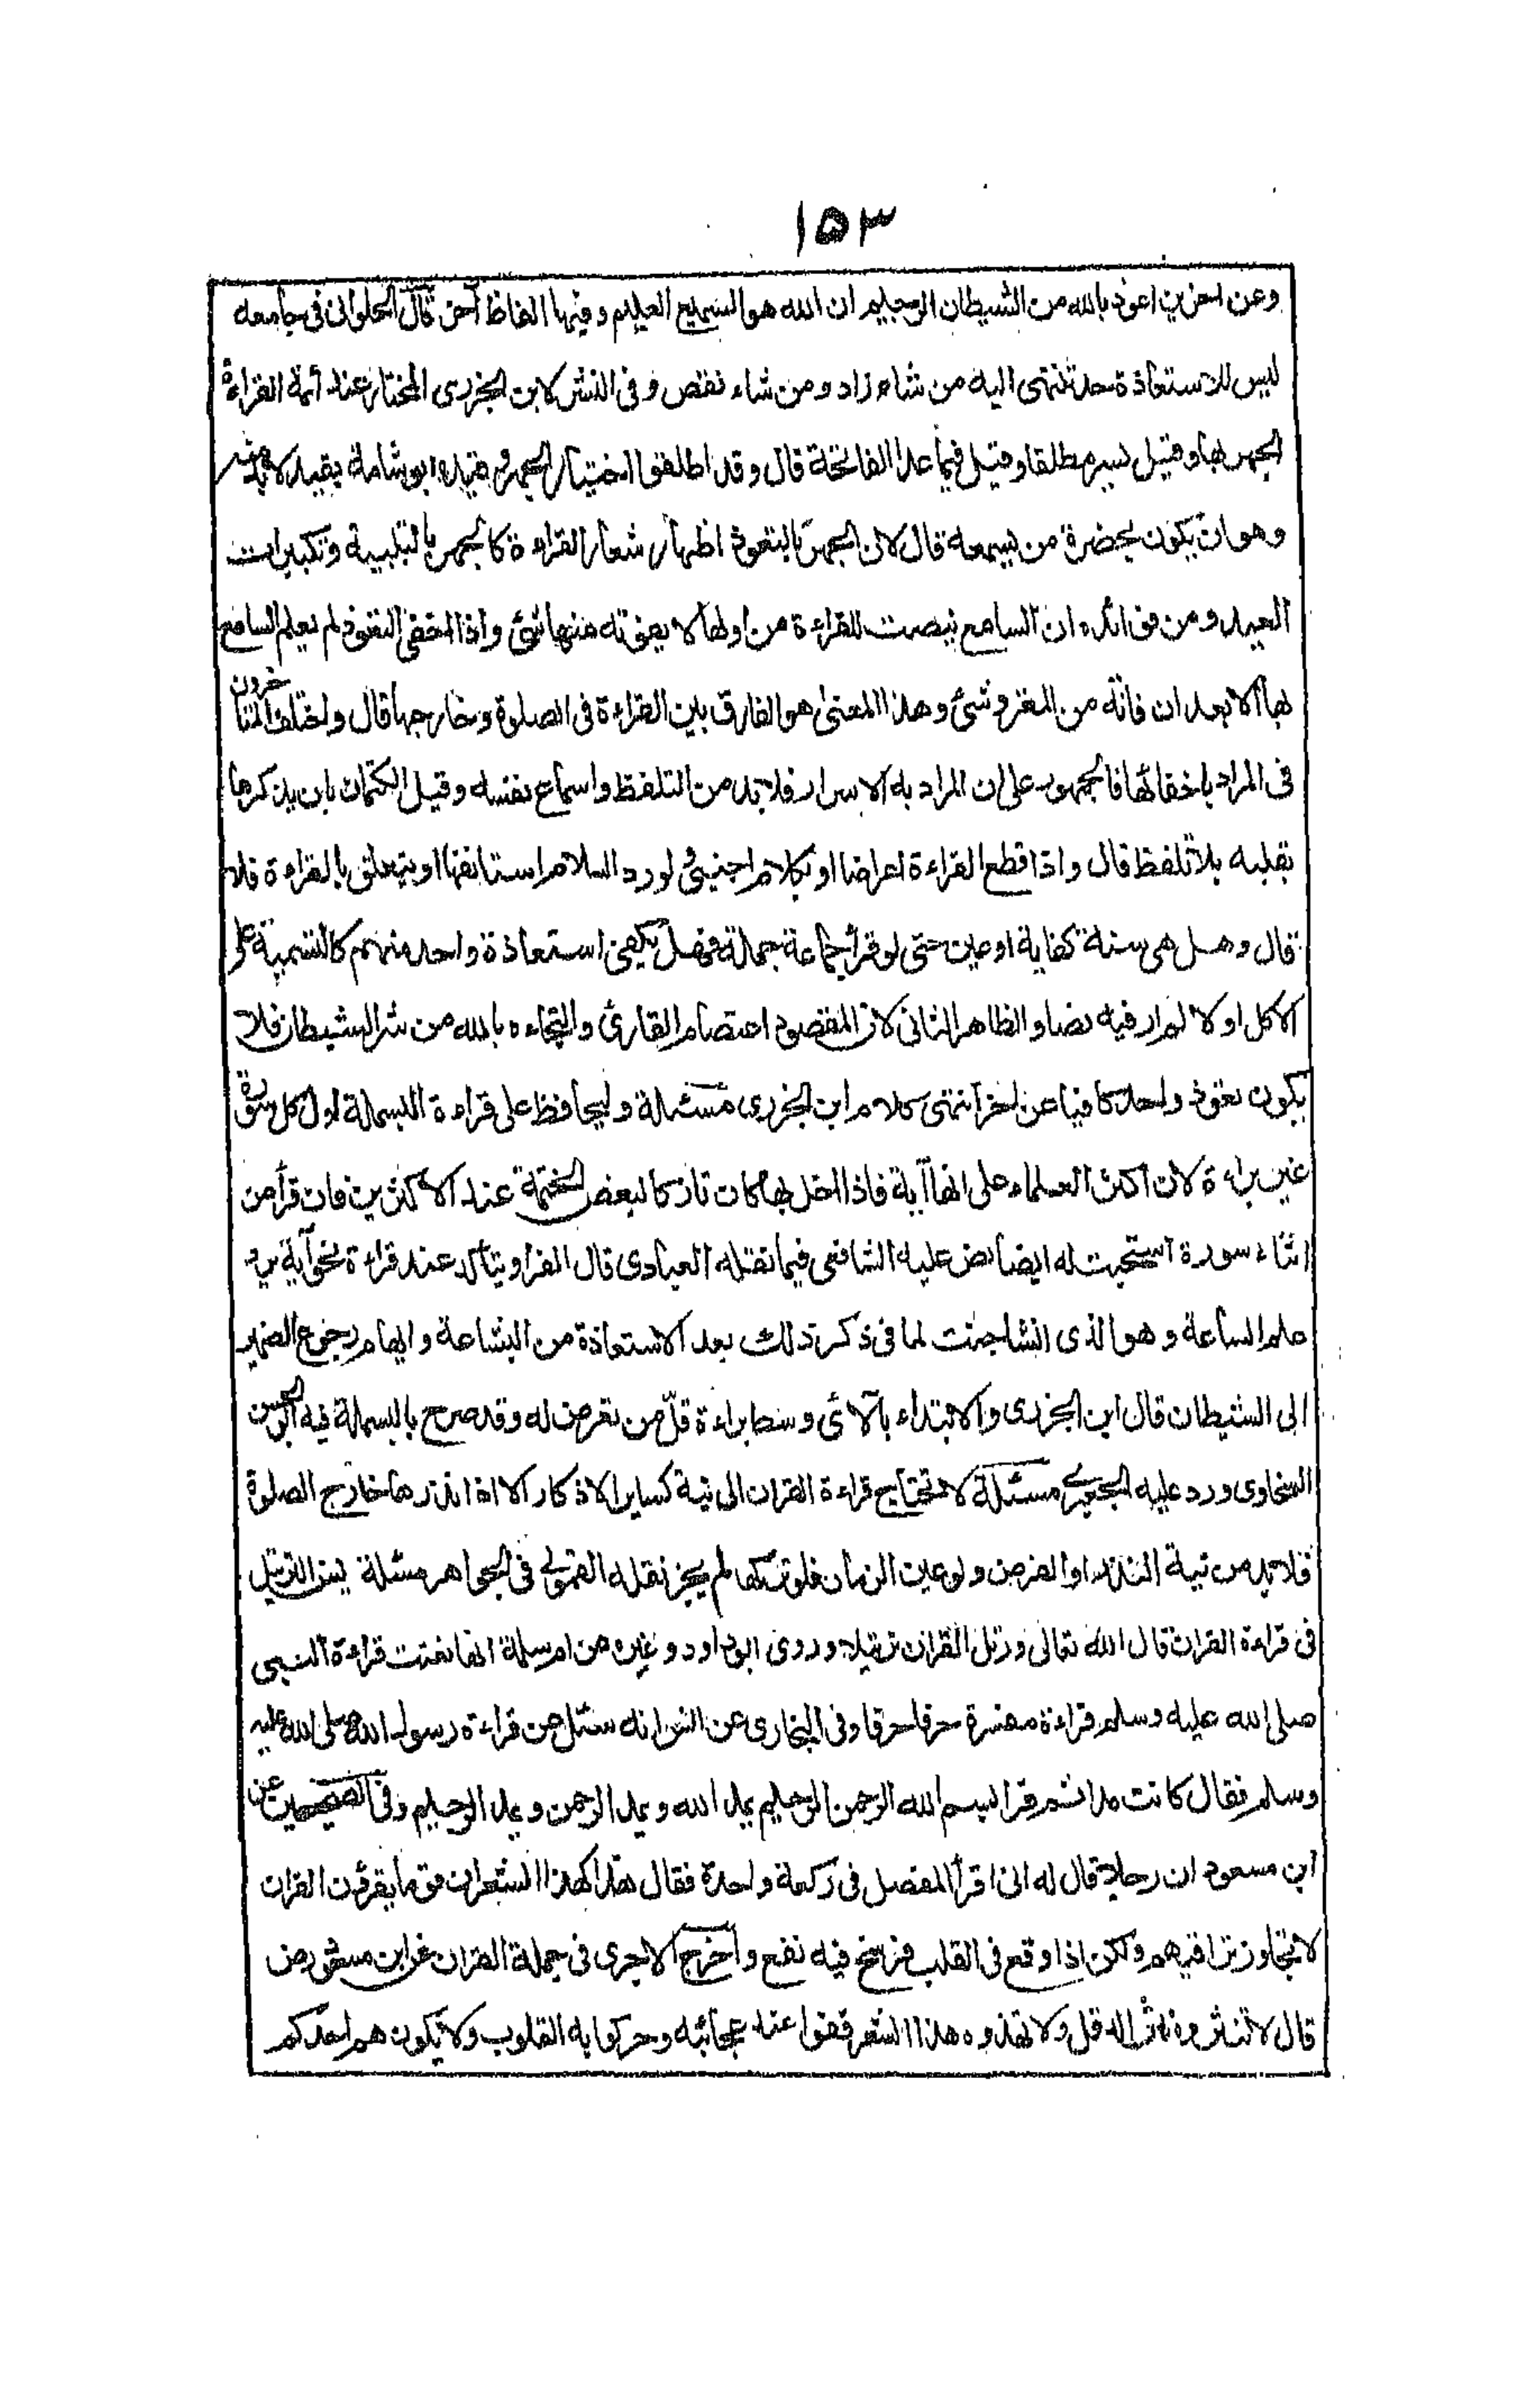 ١٥٣
وعن اخرين اعوذ بالله من الشيطان الرجيم ان الله هو السميع العليم وفيها الفاظ آخر قال الحلوانى فى جامعه
ليس للاستعاذة حد تنتهى اليه من شاء زاد ومن شاء نقص وفى النشر لابن الجزرى المختار عند أئمة القراءة
الجهر بها وقيل يسر مطلقا وقيل فيما عدا الفاتحة قال وقد اطلقوا اختيار الجهر وقيده ابو شامة بقيد لابد منه
وهو ان يكون بحضرة من يسمعه قال لان الجهر بالتعوذ اظهار شعار القراءة كالجهر بالتلبية وتكبيرات
العيد ومن فوائده ان السامع ينصت للقراءة من اولها لا يفوته منها شئ واذا اخفى التعوذ لم يعلم السامع
بها الا بعد ان فاته من المقرو شئ وهذا المعنى هو الفارق بين القراءة فى الصلوة وخارجها قال واختلف المتأخرون
فى المراد باخفائها فالجمهور على ان المراد به الاسرار فلا بد من التلفظ واسماع نفسه وقيل الكتمان بان يذكرها
بقلبه بلا تلفظ قال واذا قطع القراءة اعراضا او بكلام اجنبى ولو رد السلام استانفها او يتعلق بالقراءة فلا
قال وهل هى سنة كفاية او عين حتى لو قرأ جماعة جملة فهل يكفى استعاذة واحد منهم كالتسمية على
الاكل او لا لم ار فيه نصا والظاهر الثانى لان المقصود اعتصام القارئ والتجاءه بالله من شر الشيطان فلا
يكون تعوذ واحد كافيا عن اخر انتهى كلام ابن الجزرى مسئلة وليحافظ على قراءة البسملة اول كل سورة
غير براءة لان اكثر العلماء على انها آية فاذا اخل بها كان تاركا لبعض الختمة عند الاكثرين فان قرأ من
اثناء سورة استحبت له ايضا نص عليه الشافعى فيما نقله العبادى قال القراء ويتأكد عند قراءة نحو آية يرد
علم الساعة وهو الذى انشا جنت لما فى ذكر ذلك بعد الاستعاذة من البشاعة وايهام رجوع الضمير
الى الشيطان قال ابن الجزرى والابتداء بالآى وسط براءة قلّ من تعرض له وقد صرح بالبسملة فيه ابو الحسن
السخاوى ورد عليه الجعبرى مسئلة لا تحتاج قراءة القران الى نية كساير الاذكار الا اذا نذرها خارج الصلوة
فلا بد من نية النذر او الفرض ولو عين الزمان فلو تركها لم يجز نقله القمولى فى الجواهر مسئلة يسن الترتيل
فى قراءة القران قال الله تعالى ورتل القران ترتيلا وروى ابو داود وغيره عن ام سلمة انها نعتت قراءة النبى
صلى الله عليه وسلم قراءة مفسرة حرفا حرفا وفى البخارى عن انس انه سئل عن قراءة رسول الله صلى الله عليه
وسلم فقال كانت مدا ثم قرا بسم الله الرحمن الرحيم يمد الله ويمد الرحمن ويمد الرحيم وفى الصحيحين عن
ابن مسعود ان رجلا قال له انى اقرأ المفصل فى ركعة واحدة فقال هذا كهذا الشعر ان قوما يقرؤن القران
لا يتجاوز تراقيهم ولكن اذا وقع فى القلب فرسخ فيه نفع واخرج الاجرى فى جملة القران عن ابن مسعود رض
قال لا تنثروه نثر الدقل ولا تهذوه هذا الشعر قفوا عند عجائبه وحركوا به القلوب ولا يكون هم احدكم